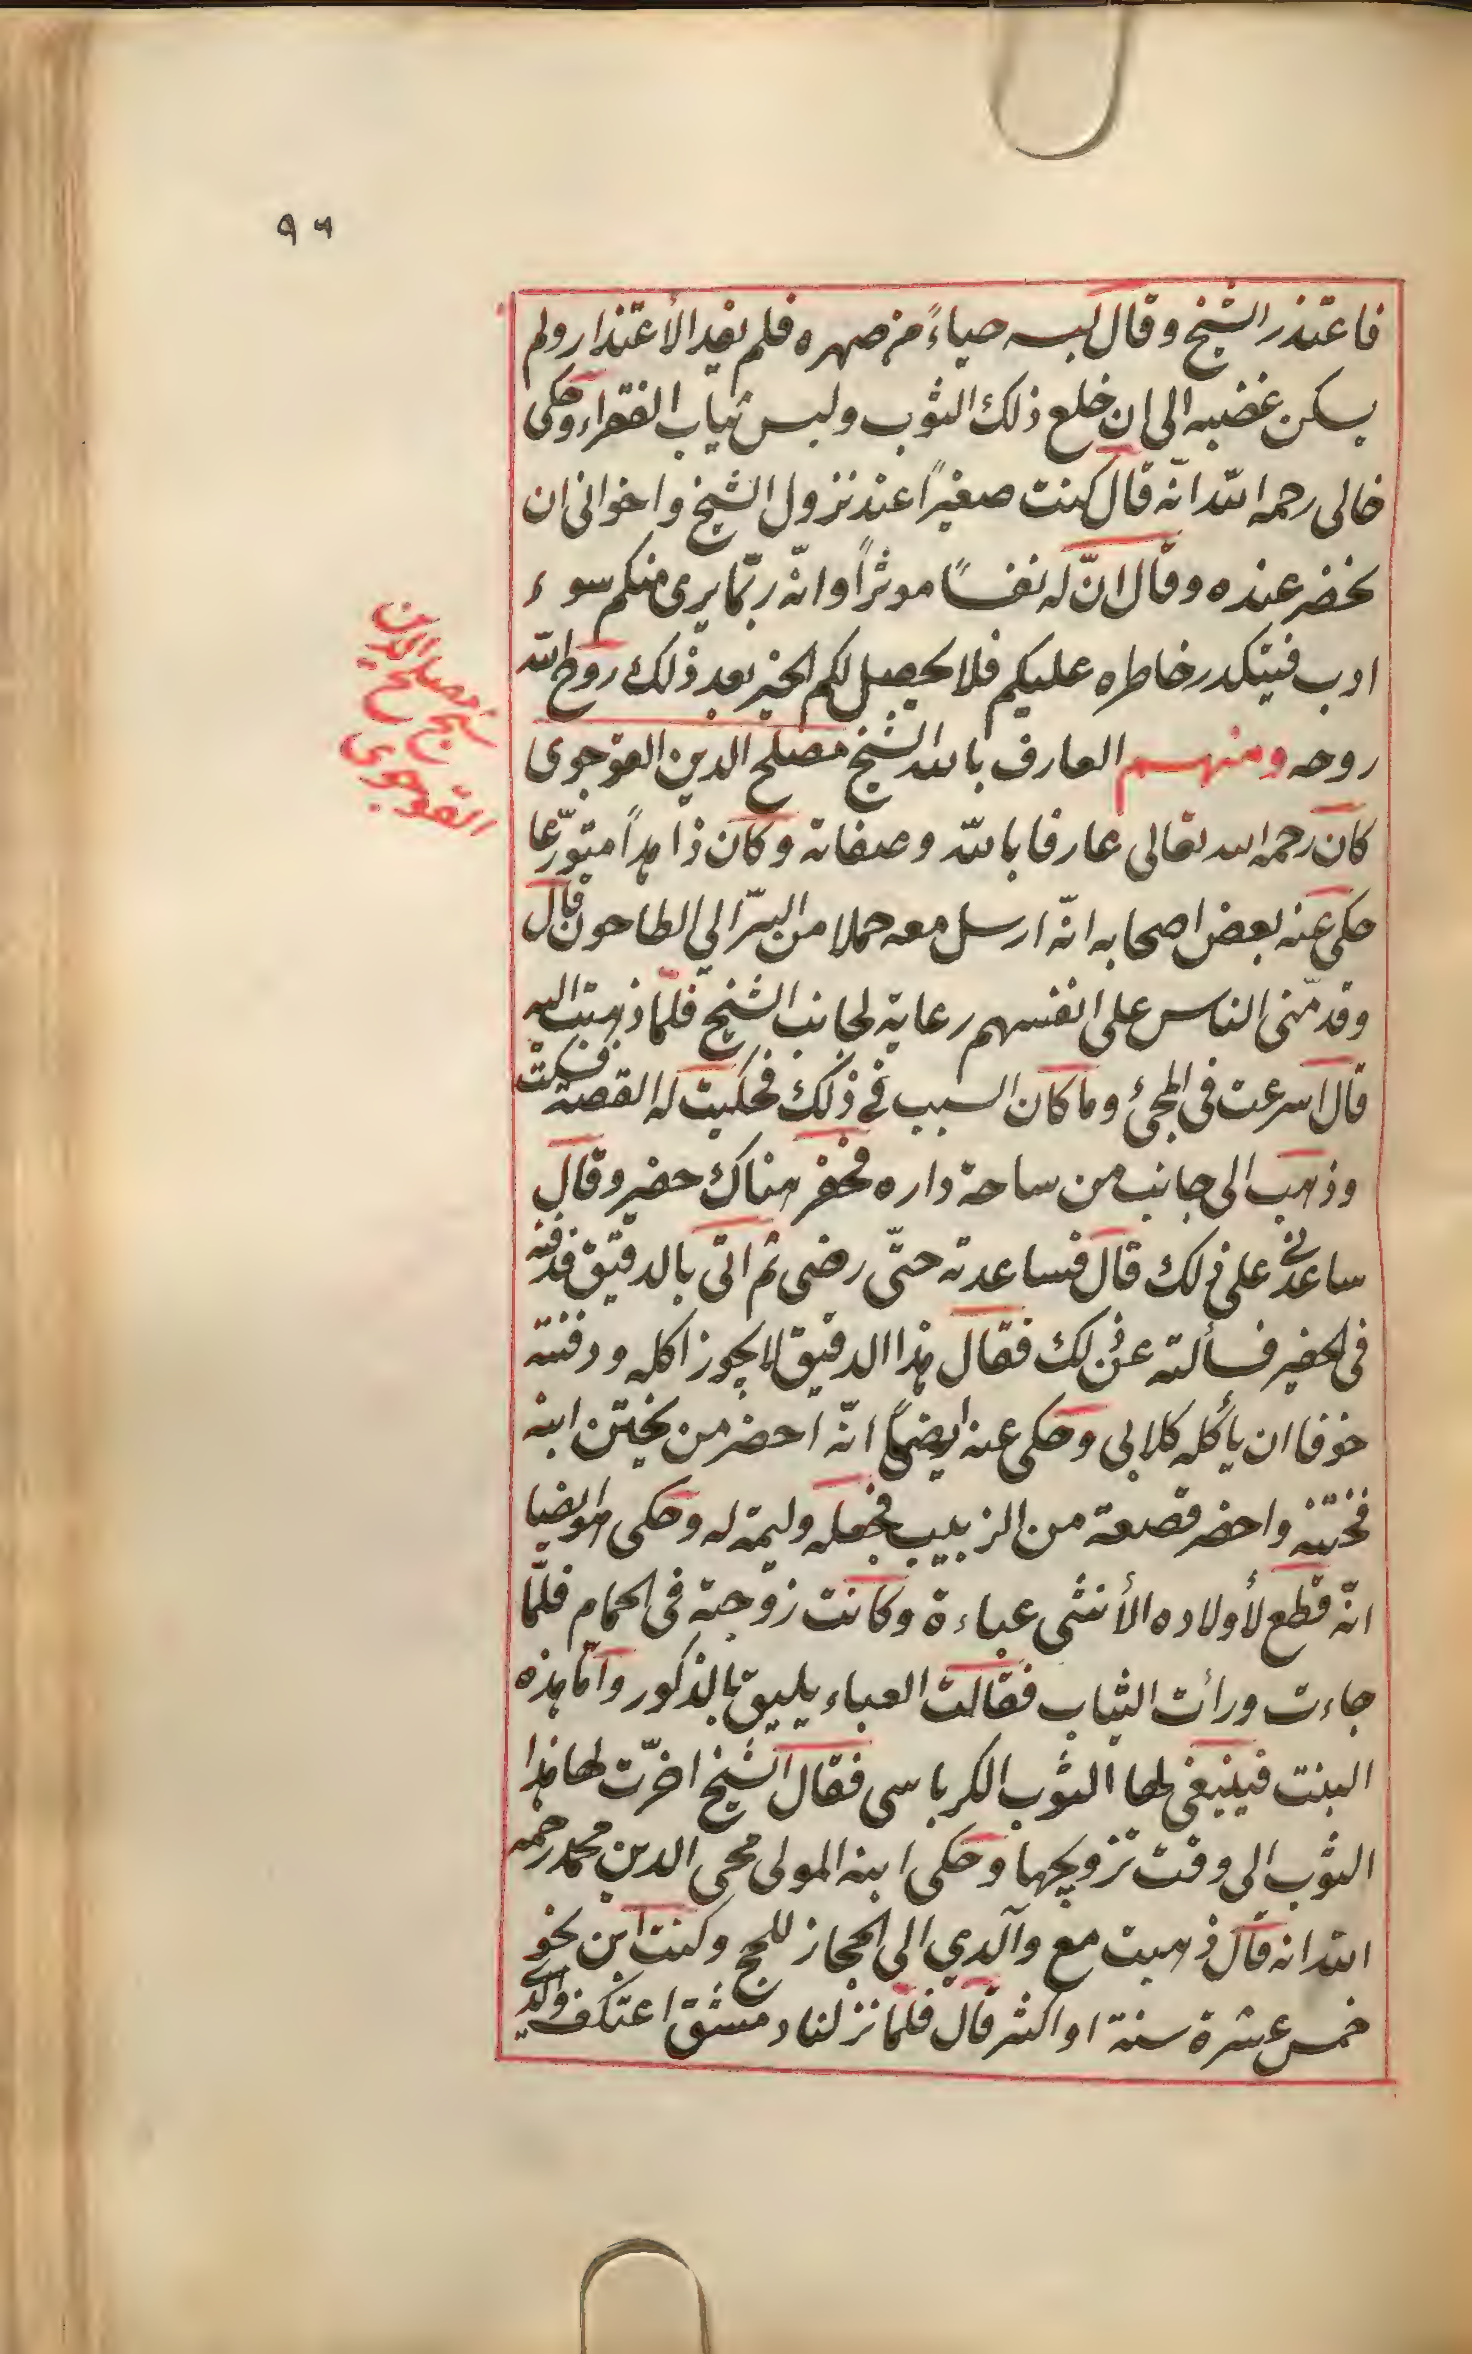 ٩٦
فاعتذر الشيخ وقال لبسه حياءً من صهره فلم يفد الأعتذار ولم
يسكن غضبه الى ان خلع ذلك الثوب ولبس ثياب الفقراء وحكى
خالى رحمه الله انّه قال كنت صغيراً عند نزول الشيخ واخوانى ان
نحضر عنده وقال انّ له نفساً موثراً وانّه ربّما يرى منكم سوء
ادب فيتكدر خاطره عليكم فلا يحصل لكم الخير بعد ذلك روّح الله
روحه ومنهم العارف بالله الشيخ مصلح الدين القوجوى
كان رحمه الله تعالى عارفا بالله وصفاته وكان زاهداً متورّعا
حكى عنه بعض اصحابه انّه ارسل معه حملا من البرّ الي الطاحون قال
وقدّمنى الناس على انفسهم رعاية لجانب الشيخ فلمّا ذهبت اليه
قال اسرعت فى المجئ وما كان السبب فى ذلك فحكيت له القصة فسكت
وذهب الى جانب من ساحة داره فحفر هناك حضير وقال
ساعدنى على ذلك قال فساعدته حتّى رضى ثم اتى بالدقيق فدفنه
فى الحفير فسألته عن ذلك فقال هذا الدقيق لا يجوز اكله ودفنته
خوفا ان يأكله كلابى وحكى عنه ايضاً انّه احضر من يختن ابنه
فختنه واحضر قصعة من الزبيب فجعله وليمة له وحكى هو ايضا
انّه قطع لأولاده الأنثى عباءة وكانت زوجته فى الحمام فلمّا
جاءت ورأت الثياب فقالت العباء يليق بالذكور وامّا هذه
البنت فينبغى لها الثوب الكرباسى فقال الشيخ اخرّت لها هذا
الثوب الى وقت تزويجها وحكى ابنه المولى محى الدين محمد رحمه
الله انه قال ذهبت مع والدي الى الحجاز للحج وكنت ابن نحو
خمس عشرة سنة او اكثر قال فلمّا نزلنا دمشق اعتكف والدي
شيخ مصلح الدين
القوجوى